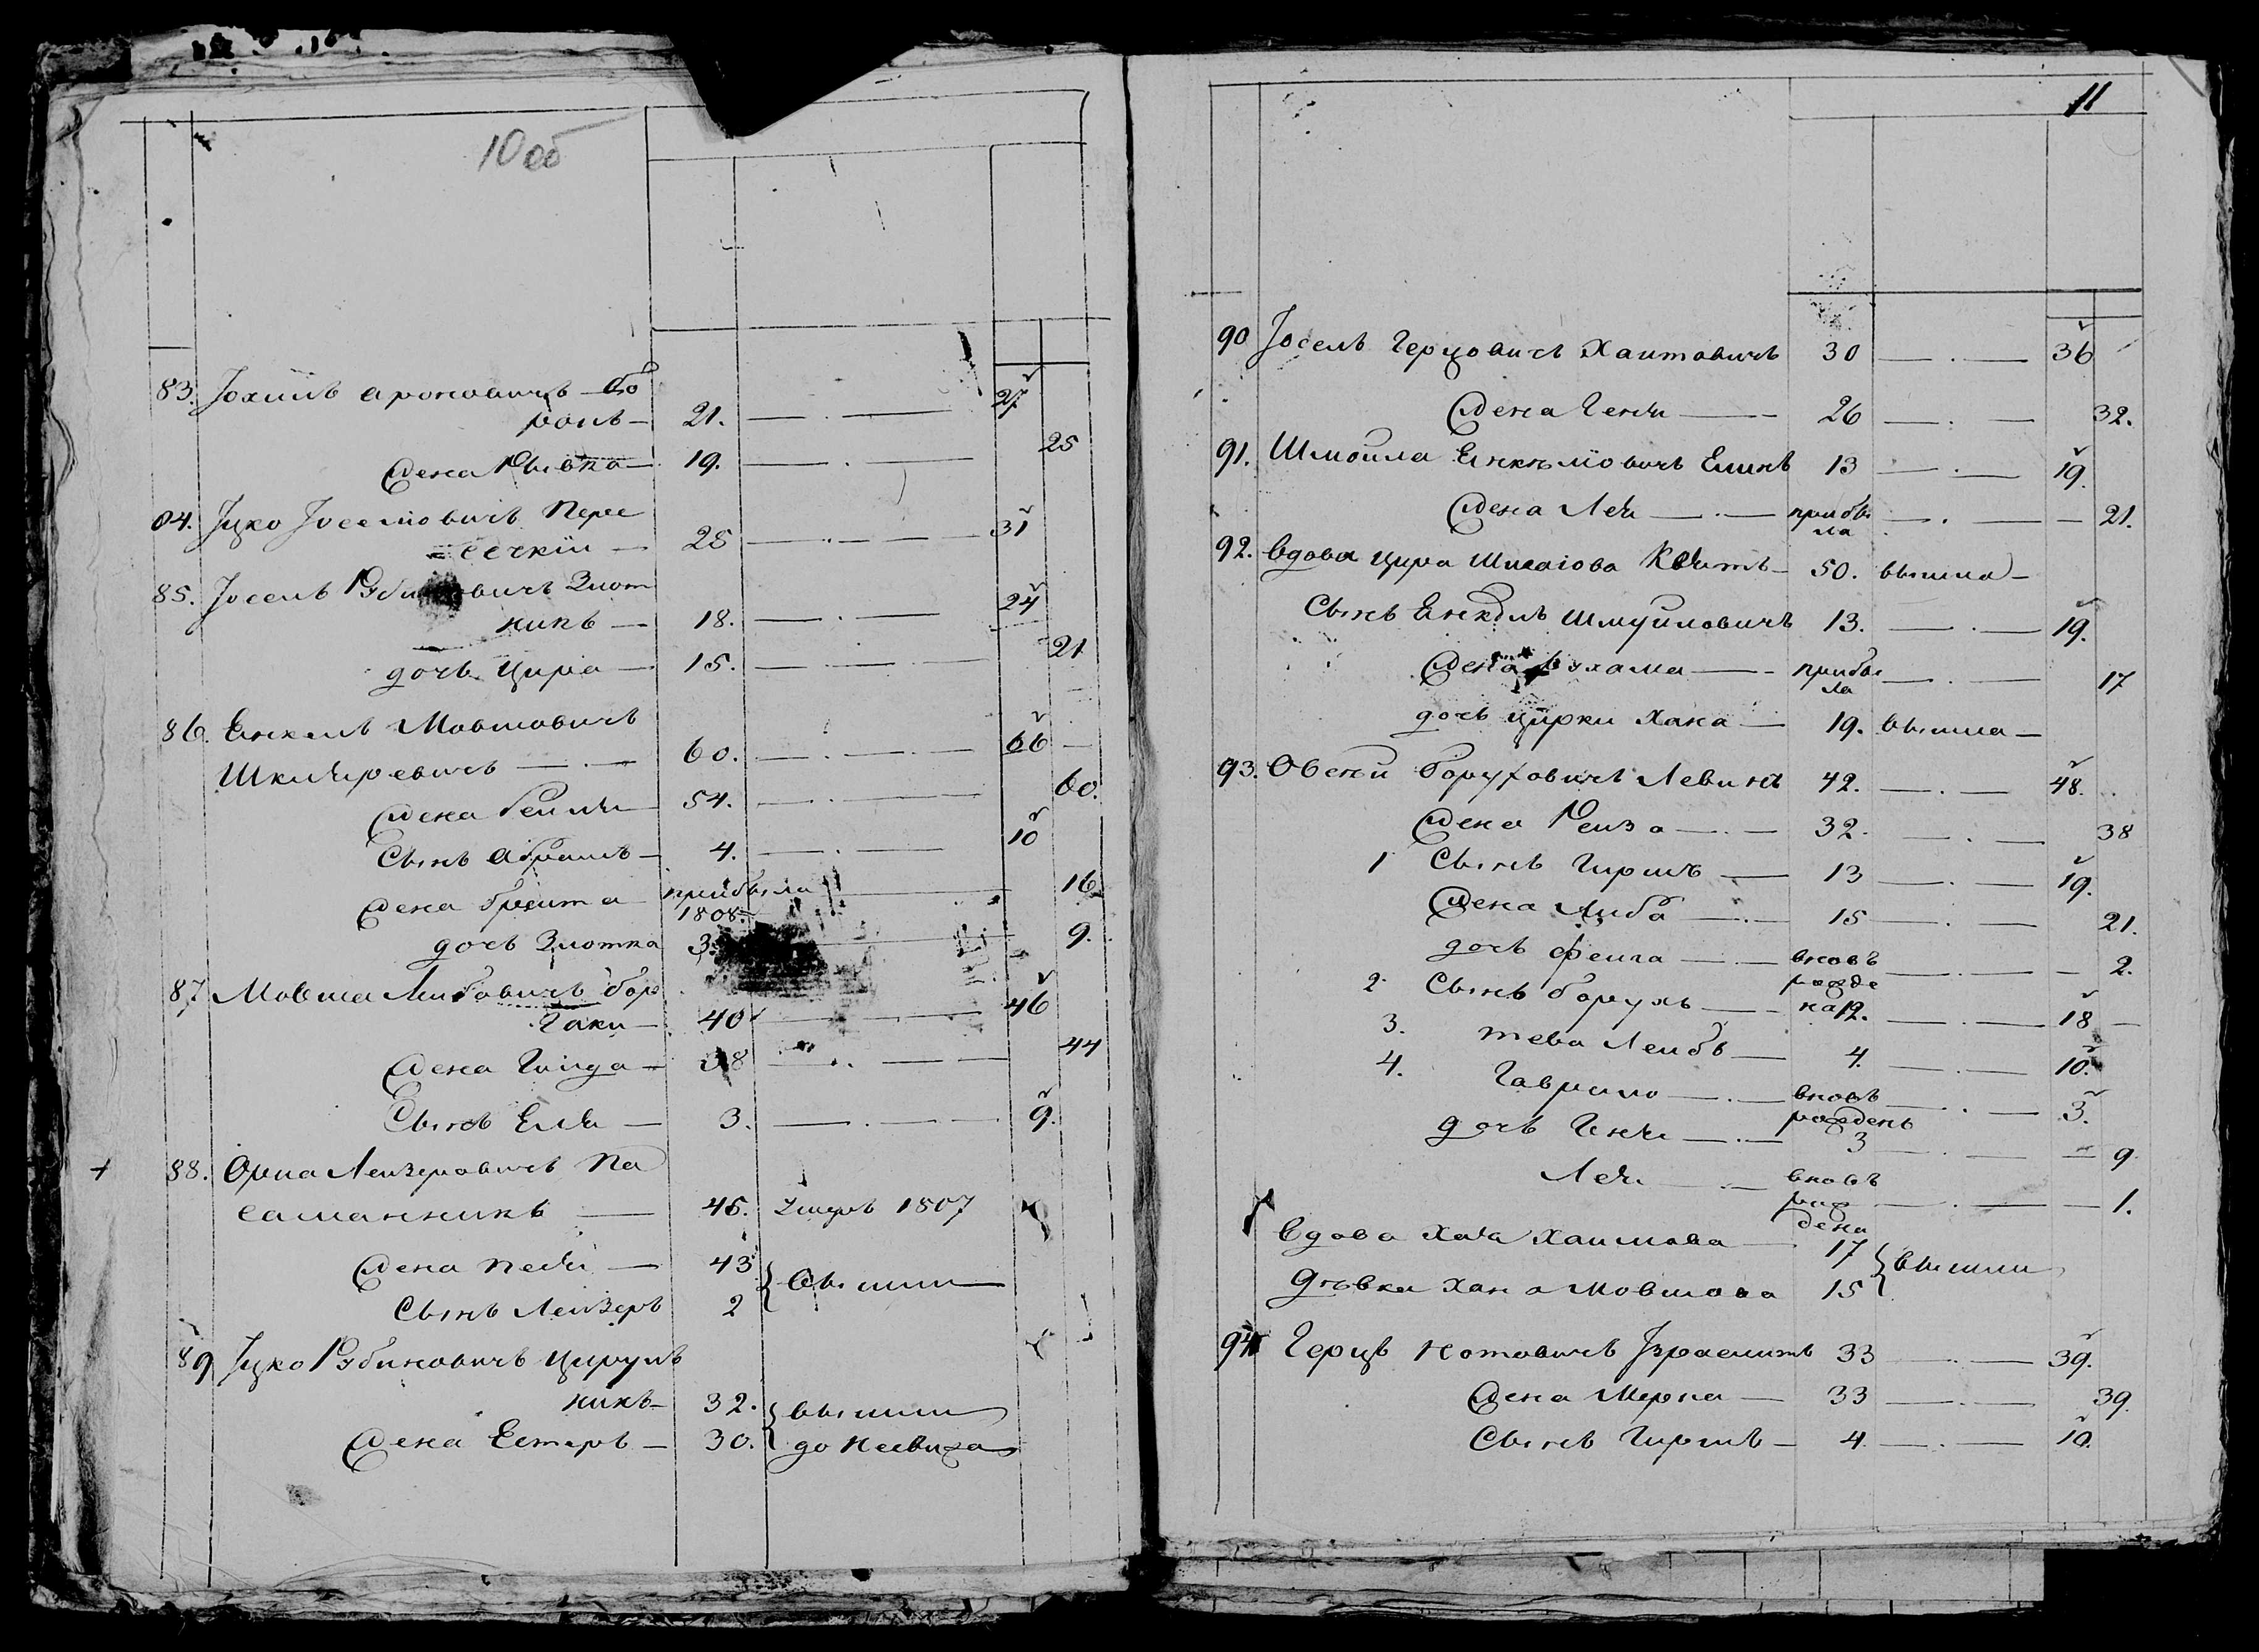 10 об
83. Іохилъ Ароновичъ Бо
ронъ — 21. — · — 27
жена Рывка — 19. — · — 25
84. Іцко Іоселіовичъ Пере
сечкіи — 25 — · — 31
85. Іосель Рубиновичъ Злот
никъ — 18. — · — 24
дочь Цира — 15. — · — 21
86. Енкель Мовшовичъ
60. — · — 66 —
жена Геиля 54. — · — 60.
Сынъ Абрамъ — 4. — · — 10
жена прибыла 16
1808
дочь Злотка 3. 9.
87 Мовша Либовичъ
40 — · — 46
жена Гинда — 38 — · — 44
Сынъ Еля — 3. — · — 9.
88. Орка Леизеровичъ Па
саманникъ — 45. Змеръ 1807
жена Песя — 43
Сынъ Леизеръ 2 } вышли
89 Іцко Рубиновичъ Цируль
никъ — 32. } вышли
жена Естеръ — 30. } до Несвижа
11
90 Іосель Герцовичъ Хаитовичъ 30 — · — 36
жена Геня — 26 — · — 32.
91. Шмоила Енкеліовичъ Елинъ 13 — · — 19.
жена Лея — · — прибы — · — 21.
ла
92. Вдова Цира 50. вышла —
Сынъ Енкель Шмуиловичъ 13. — · — 19.
жена — прибы — · — 17
ла
дочь Цирки Хана — 19. вышла —
93. Овсей Боруховичъ Левинъ 42. — · — 48.
жена Реиза — · — 32. — · — 38
1 Сынъ Гиршъ — 13 — · — 19.
жена Либа — · — 15 — · — 21.
дочь Феига — · — вновь — · — 2.
рожде
2. Сынъ Борухъ — · — на 12. — · — 18 —
3. Тева Леибъ — 4. — · — 10.
4. Гаврило — · — вновь — · — 3.
рожденъ
дочь Геня — · — 3 — · — 9
Лея — · — вновь
рож — · — 1.
дена
Вдова Хая Хаимова — 17 } вышли
дѣвка Хана Мовшова 15
94 Герцъ Нотовичъ Ізраелитъ 33 — · — 39.
жена Мерка — 33 — · — 39.
Сынъ Гиршъ — 4. — · — 10.